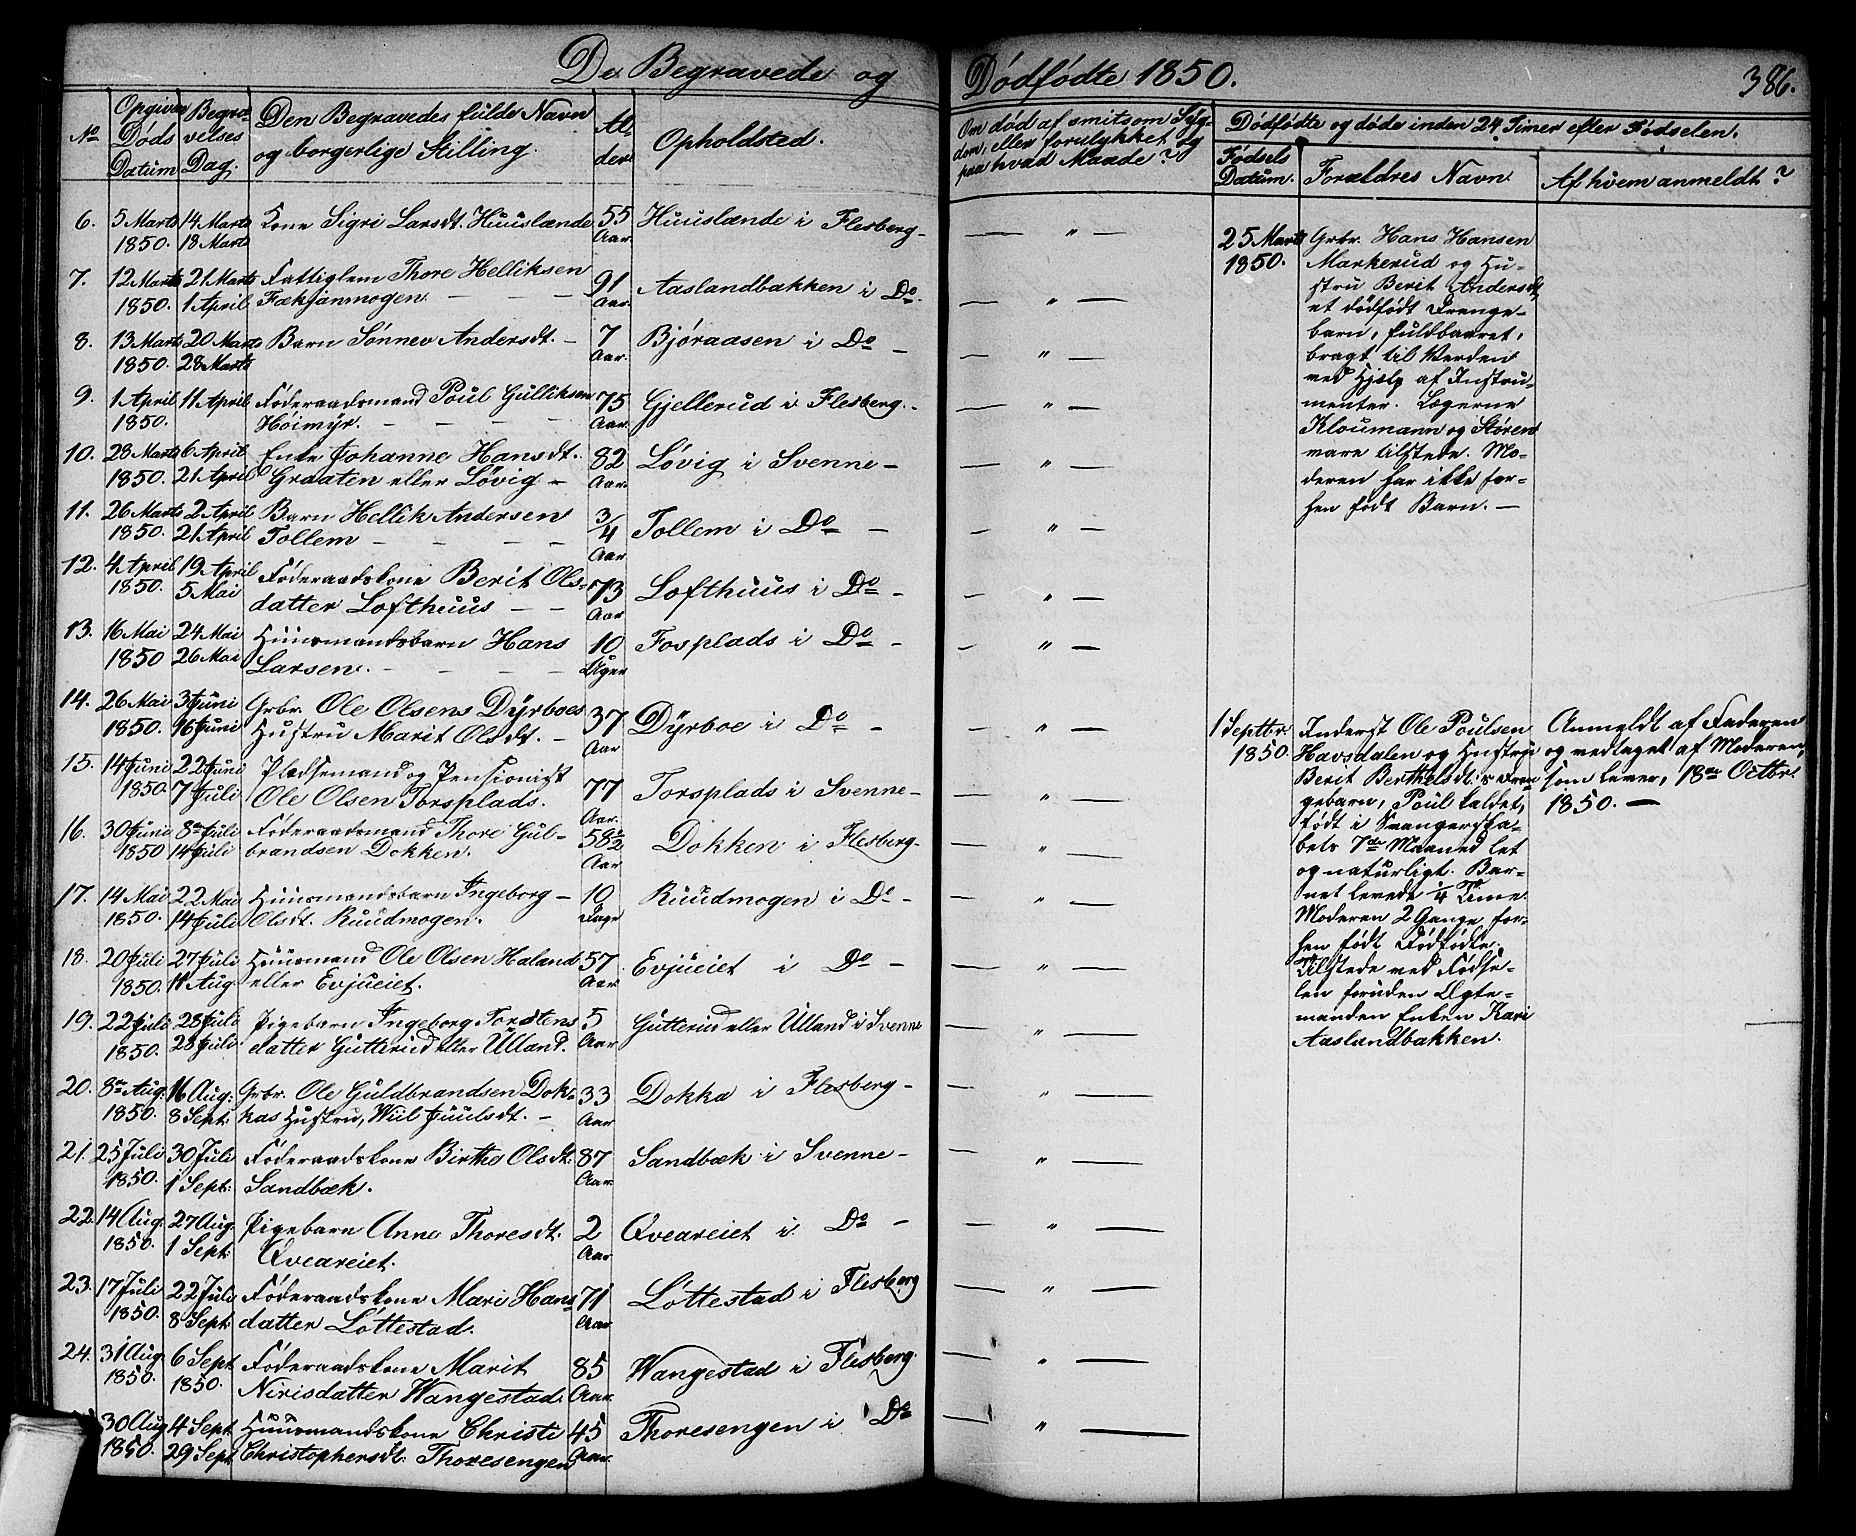 De Begravede og Dødfødte 1850.
386.
No
Opgiven Døds Datum
Begravelses Dag.
Den Begravedes fulde Navn og borgerlige Stilling.
Alder
Opholdsted.
Om død af smitsom Sygdom, eller forulykket og paa hvad Maade?
Dødfødte og døde inden 24 Timer efter Fødselen.
Fødsels Datum.
Forældres Navn
Af hvem anmeldt?
6. 5 Marts 1850. 14 Marts 18 Marts Kone Sigri Larsdt. Huuslænde 55 Aar Huuslænde i Flesberg —
7. 12 Marts 1850. 21 Marts 1 April Fattiglem Thore Helliksen Fækjanmogen 91 Aar. Aaslandbakken i Do
8. 13 Marts 1850. 20 Marts 28 Marts Barn Sønnev Andersdt. 7 Aar. Bjøraasen i Do —
9. 1 April 1850. 11 April Föderaadsmand Poul Gulliksen Höimÿr. 75 Aar. Gjellerud i Flesberg. —
10. 28 Marts 1850. 6 April 21 April Enke Johanne Hansdt. Graaten eller Løvig 82 Aar. Løvig i Svenne —
11. 26 Marts 1850. 2 April 21 April Barn Hellik Andersen Tollem 3/4 Aar Tollem i Do —
12. 4 April 1850. 19 April 5 Mai Föderaadskone Berit Olsdatter Lofthuus 73 Aar Lofthuus i Do —
13. 16 Mai 1850 24 Mai 26 Mai Huusmandsbarn Hans Larsen. 10 Uger Fosplads i Do —
14. 26 Mai 1850. 3 Juni 16 Juni Grbr. Ole Olsens Dÿrboes Hustru Marit Olsdt. 37 Aar Dÿrboe i Do —
15. 14 Juni 1850. 22 Juni 7 Juli Pladsemand og Pensionist Ole Olsen Torsplads. 77 Aar. Torsplads i Svenne —
16. 30 Juni 1850 8de Juli 14 Juli Föderaadsmand Thore Gulbrandsen Dokken. 58 1/2 Aar Dokken i Flesberg —
17. 14 Mai 1850. 22 Mai 14 Juli Huusmandsbarn Ingeborg Olsdt. Ruudmogen. 10 Dage Ruudmogen i Do —
18. 20 Juli 1850. 27 Juli 11 Aug. Huusmand Ole Olsen Haland eller Evjueiet. 57 Aar. Evjueiet i Do —
19. 22 Juli 1850. 28 Juli 28 Juli Pigebarn Ingeborg Torstensdatter Gutterud eller Ulland. 5 Aar Gutterud eller Ulland i Svenne
20. 8de Aug. 1850. 16 Aug: 8 Sept: Grbr. Ole Guldbrandsen Dokkas Hustru, Wiil Juulsdt. 33 Aar Dokka i Flesberg —
21. 25 Juli 1850. 30 Juli 1 Sept: Föderaadskone Birthe Olsdt: Sandbæk. 87 Aar. Sandbæk i Svenne —
22. 14 Aug. 1850. 27 Aug. 1 Sept: Pigebarn Anne Thoresdt. Qveareiet. 2 Aar Qveareiet i Do —
23. 17 Juli 1850. 22 Juli 8 Sept: Föderaadskone Mari Hansdatter Løttestad. 71 Aar Løttestad i Flesberg
24. 31 Aug. 1850. 6 Sept 1850. Föderaadskone Marit Nirisdatter Wangestad. 85 Aar. Wangestad i Flesberg.
30 Aug 1850. 4 Sept 29 Sept Huusmandskone Christi Christophersdt: Thoresengen 45 Aar. Thoresengen i Do
25 Marts 1850.
Grbr. Hans Hansen
Markerud og Hu-
stru Berit Andersdt,
et dödfödt Drenge-
barn, fuldbaaret,
bragt til Verden
ved Hjelp af Instru-
menter. Lægerne
Kloumann og Stören
vare tilstede. Mo-
deren har ikke for-
hen födt Barn. —
1 Septbr. 1850.
Inderst Ole Poulsen
Havsdalen og Hustru
Berit Bertholsdt: s Dren-
gebarn, Poul kaldet,
födt i Svangerska-
bets 7de Maaned let
og naturligt. Bar-
net levede 1/4 Time.
Moderen 2 Gange for-
hen födt Dödfödte.
Tilstede ved Födse-
len foruden Ægte-
manden Enken Kari
Aaslandbakken.
Anmeldt af Faderen
og vedtaget af Moderen,
som lever, 18de Octbr.
1850. —